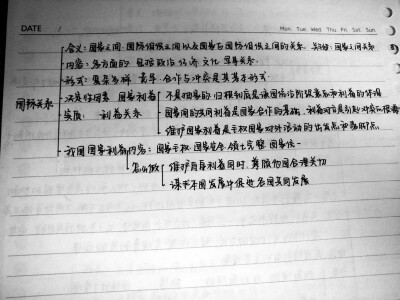 DATE /
Mon Tue Wed Thu Fri Sat Sun
含义：国家之间、国际组织之间以及国家与国际组织之间的关系。 国家之间关系
内容：多方面的 包括政治 经济 文化 军事关系.
形式：复杂多样 竞争、合作与冲突是其基本形式.
国际关系
决定性因素 国家利益
实质： 利益关系
不是抽象的 归根到底是该国统治阶级意志和利益的体现
国家间的共同利益是国家合作的基础，利益对立是引起冲突的根源
维护国家利益是主权国家对外活动的出发点和落脚点
我国国家利益内容：国家主权 国家安全 领土完整 国家统一
怎么做
维护自身利益同时，兼顾他国合理关切
谋求本国发展中促进各国共同发展